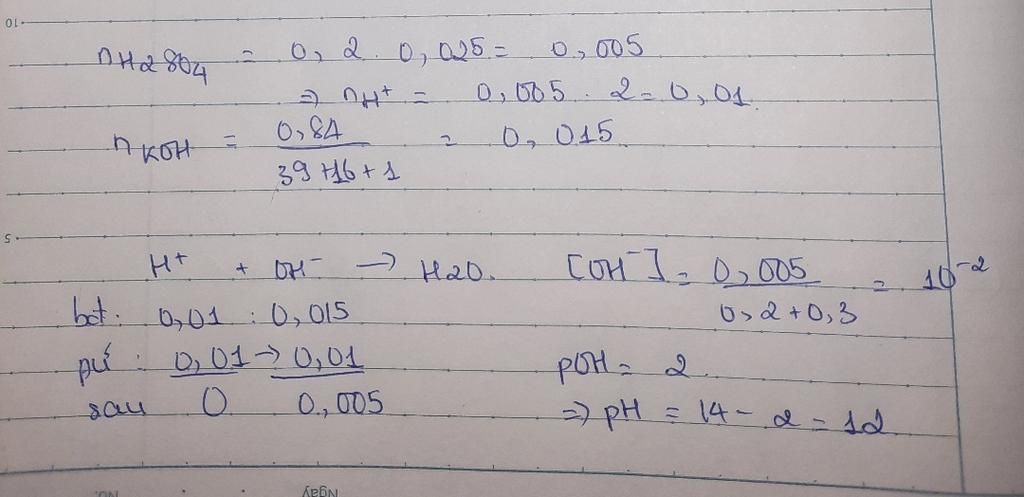 10
nH2SO4 = 0,2 . 0,025 = 0,005
=> nH+ = 0,005 . 2 = 0,01.
nKOH = 0,84 / 39+16+1 = 0,015
5
H+ + OH- -> H2O. [OH-] = 0,005 / 0,2+0,3 = 10^-2
bđ: 0,01 : 0,015
pứ : 0,01 -> 0,01 pOH = 2
sau 0 0,005 => pH = 14 - 2 = 12
No. Ngày